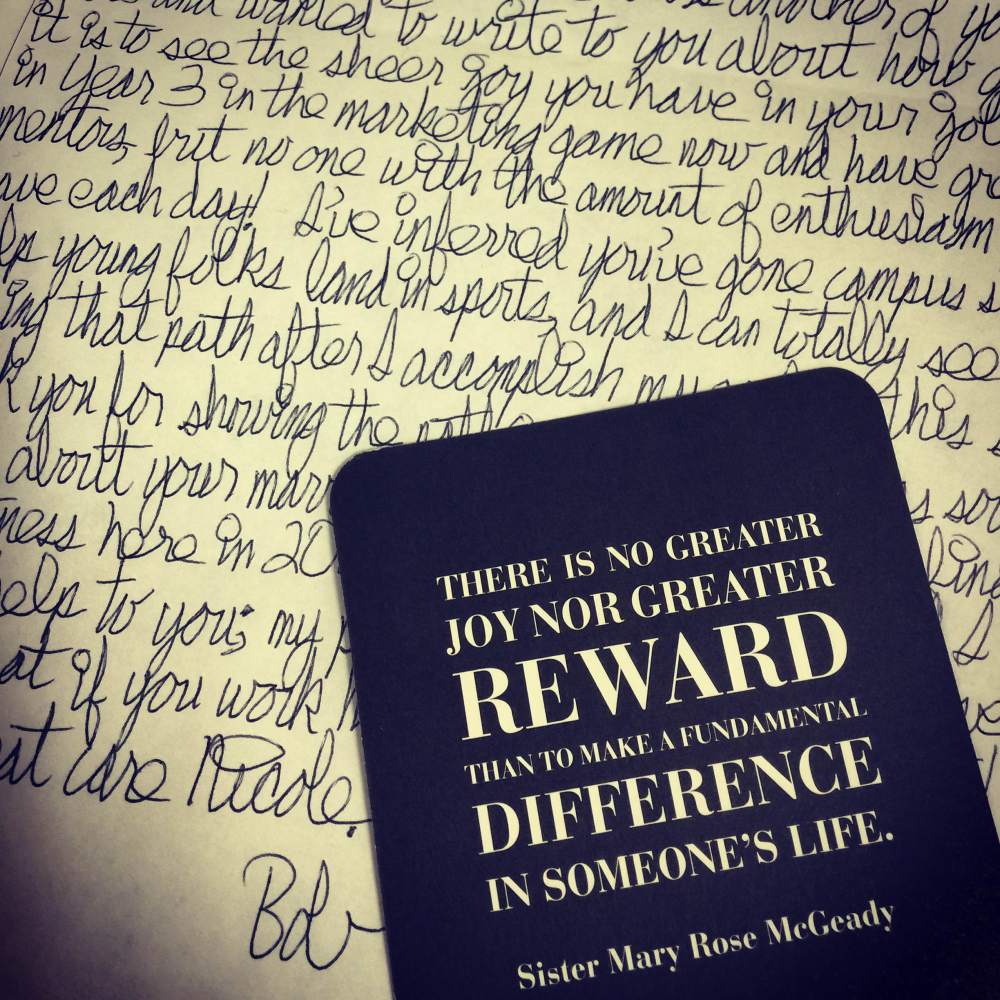 and wanted to write to you about how
it is to see the sheer joy you have in your
in Year 3 in the marketing game now and have
mentors, but no one with the amount of enthusiasm
each day! I've inferred you've gone campus
young folks land in sports, and I can totally see
that path after I accomplish my this
you for showing the
about your
here in 20
help to you; my
at if you work
care Nicole.
Bob
THERE IS NO GREATER
JOY NOR GREATER
REWARD
THAN TO MAKE A FUNDAMENTAL
DIFFERENCE
IN SOMEONE'S LIFE.
Sister Mary Rose McGeady